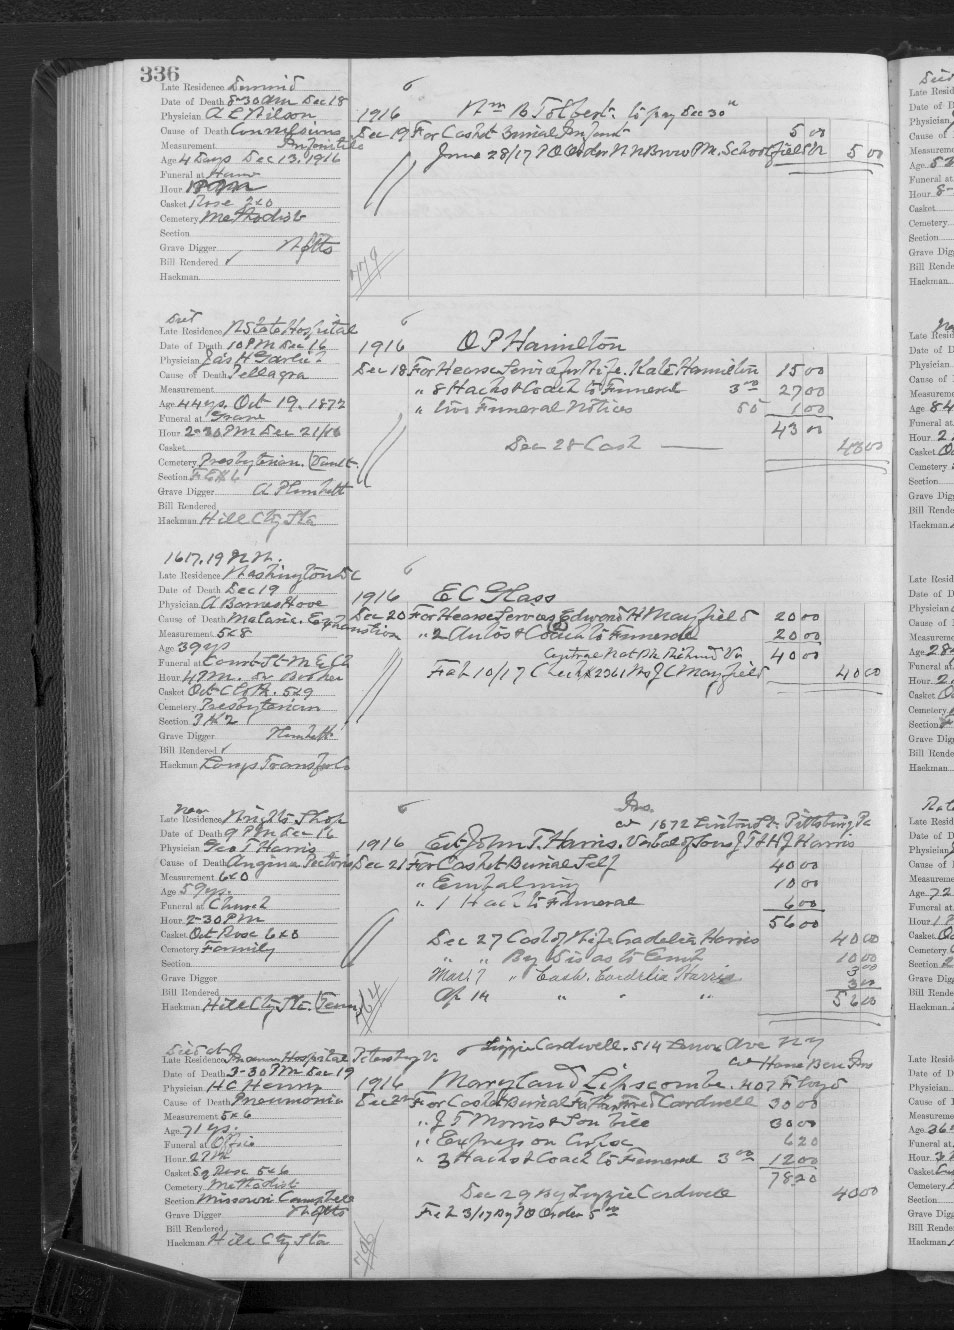 336
Late Residence
Date of Death 8-30 AM Dec 18
Physician A L Wilson
Cause of Death Convulsions
Measurement Infantile
Age 4 Days Dec 13, 1916
Funeral at Home
Hour
Casket Rose 2x0
Cemetery Methodist
Section
Grave Digger
Bill Rendered ✓
Hackman
1916 Wm B Tolbert. to pay Dec 30"
Dec 19 For Casket Burial Infant 5 00
June 28/17 P O Order 5 00
779
Late Residence State Hospital
Date of Death 10 PM Dec 16
Physician Jas H
Cause of Death Pellagra
Measurement
Age 44 ys. Oct 19. 1872
Funeral at Grave
Hour 2-30 PM Dec 21/16
Casket
Cemetery Presbyterian. (Vault.
Section
Grave Digger A Plunkett
Bill Rendered
Hackman Hill City Sta
1916 O P Hamilton
Dec 18 For Hearse Service for Wife. Kate Hamilton 15 00
" 8 Hacks & Coach to Funeral 3 00 27 00
" two Funeral Notices 50 1 00
43 00
Dec 28 Cash 43 00
1617. 19 N W.
Late Residence Washington DC
Date of Death Dec 19
Physician A Barnes Hooe
Cause of Death Exhaustion
Measurement 5x8
Age 39 ys
Funeral at Court St M E Ch
Hour 4 PM.
Casket Oct Cloth. 5x9
Cemetery Presbyterian
Section
Grave Digger Plunkett
Bill Rendered ✓
Hackman Longs Transfer Co
1916 E C Glass
Dec 20 For Hearse Services Edward H Mayfield 20 00
" 2 Autos & Coach to Funeral 20 00
Central Nat Bk Richmd Va 40 00
Feb 10/17 Check # 2061 Mrs J C Mayfield 40 00
near
Late Residence Wrights Shop
Date of Death 9 PM Dec 16
Physician Geo T Harris
Cause of Death Angina Pectoris
Measurement 6x0
Age 59 ys.
Funeral at Church
Hour 2-30 PM
Casket Oct Rose 6x0
Cemetery Family
Section
Grave Digger
Bill Rendered
Hackman Hill City Sta.
Ins.
1672 Linton St. Pittsburg Pa
1916 Est John T. Harris. Verbal of Sons J T & H J Harris
Dec 21 For Casket Burial Self 40 00
" Embalming 10 00
" 1 Hack to Funeral 6 00
56 00
Dec 27 Cash of Wife Cordelia Harris 40 00
" " By Dis as to Emb 10 00
Mar 17 " Cash. Cordelia Harris 3 00
Ap 14 " " " 3 00
56 00
764
Died at
Late Residence Hospital Petersburg Va
Date of Death 3-30 PM Dec 19
Physician H C Henry
Cause of Death Pneumonia
Measurement 5x6
Age 71 ys.
Funeral at Office
Hour 2 PM
Casket Sq Rose 5x6
Cemetery Methodist
Section Missouri Campbell
Grave Digger
Bill Rendered
Hackman Hill City Sta
Lizzie Cardwell. 514 Lenox Ave NY
1916 Maryland Lipscombe. 407 Floyd
For Casket Burial Father Fred Cardwell 30 00
" J T Morris & Son Bill 30 00
" Express on Corpse 6 20
" 3 Hacks & Coach to Funeral 3 00 12 00
78 20
Dec 29 By Lizzie Cardwell 40 00
Feb 3/17 By P O Order 5 00
796